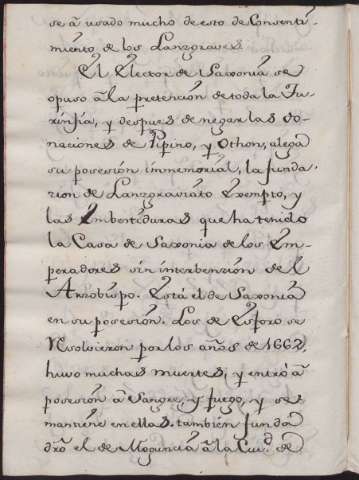 se á usado mucho de esto de Consenti-
miento de los Lanzgraves
El Elector de Saxonia se
opuso á la pretención de toda la Tu-
rinjia, y despues de negar las do-
naciones de Pipino, y Othon, alega
su posesión inmemorial, la funda-
cion de Lanzgraviato Exempto, y
las Imbortiduras que ha tenido
la Casa de Saxonia de los Em-
peradores sin interbención de el
Arzobispo. Está el de Saxonia
en su posesión. Los de se
Resolvieron por los años de 1662,
huvo muchas muertes, y entró á
posesión á Sangre, y fuego, y se
mantiene en ellas. también funda
dro el de Moguncia á la Ciud. de